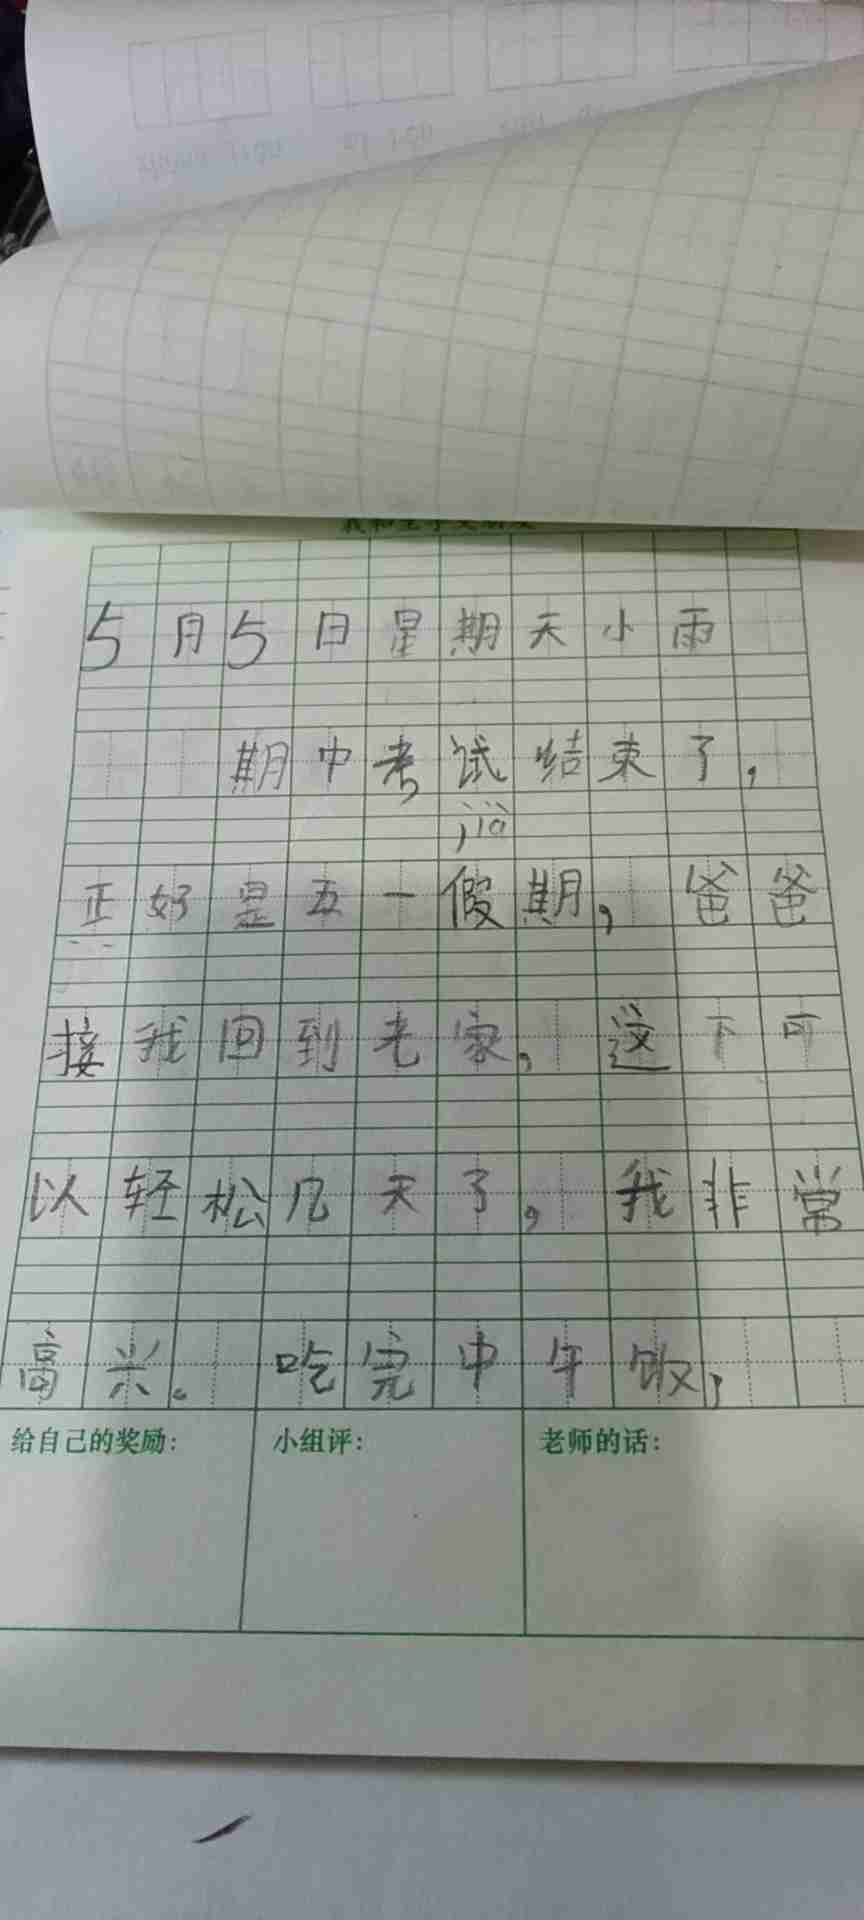 5月5日星期天小雨
期中考试结束了，
jiǎ
正好是五一假期，爸爸
接我回到老家，这下可
以轻松几天了，我非常
高兴。吃完中午饭，
给自己的奖励：
小组评：
老师的话：